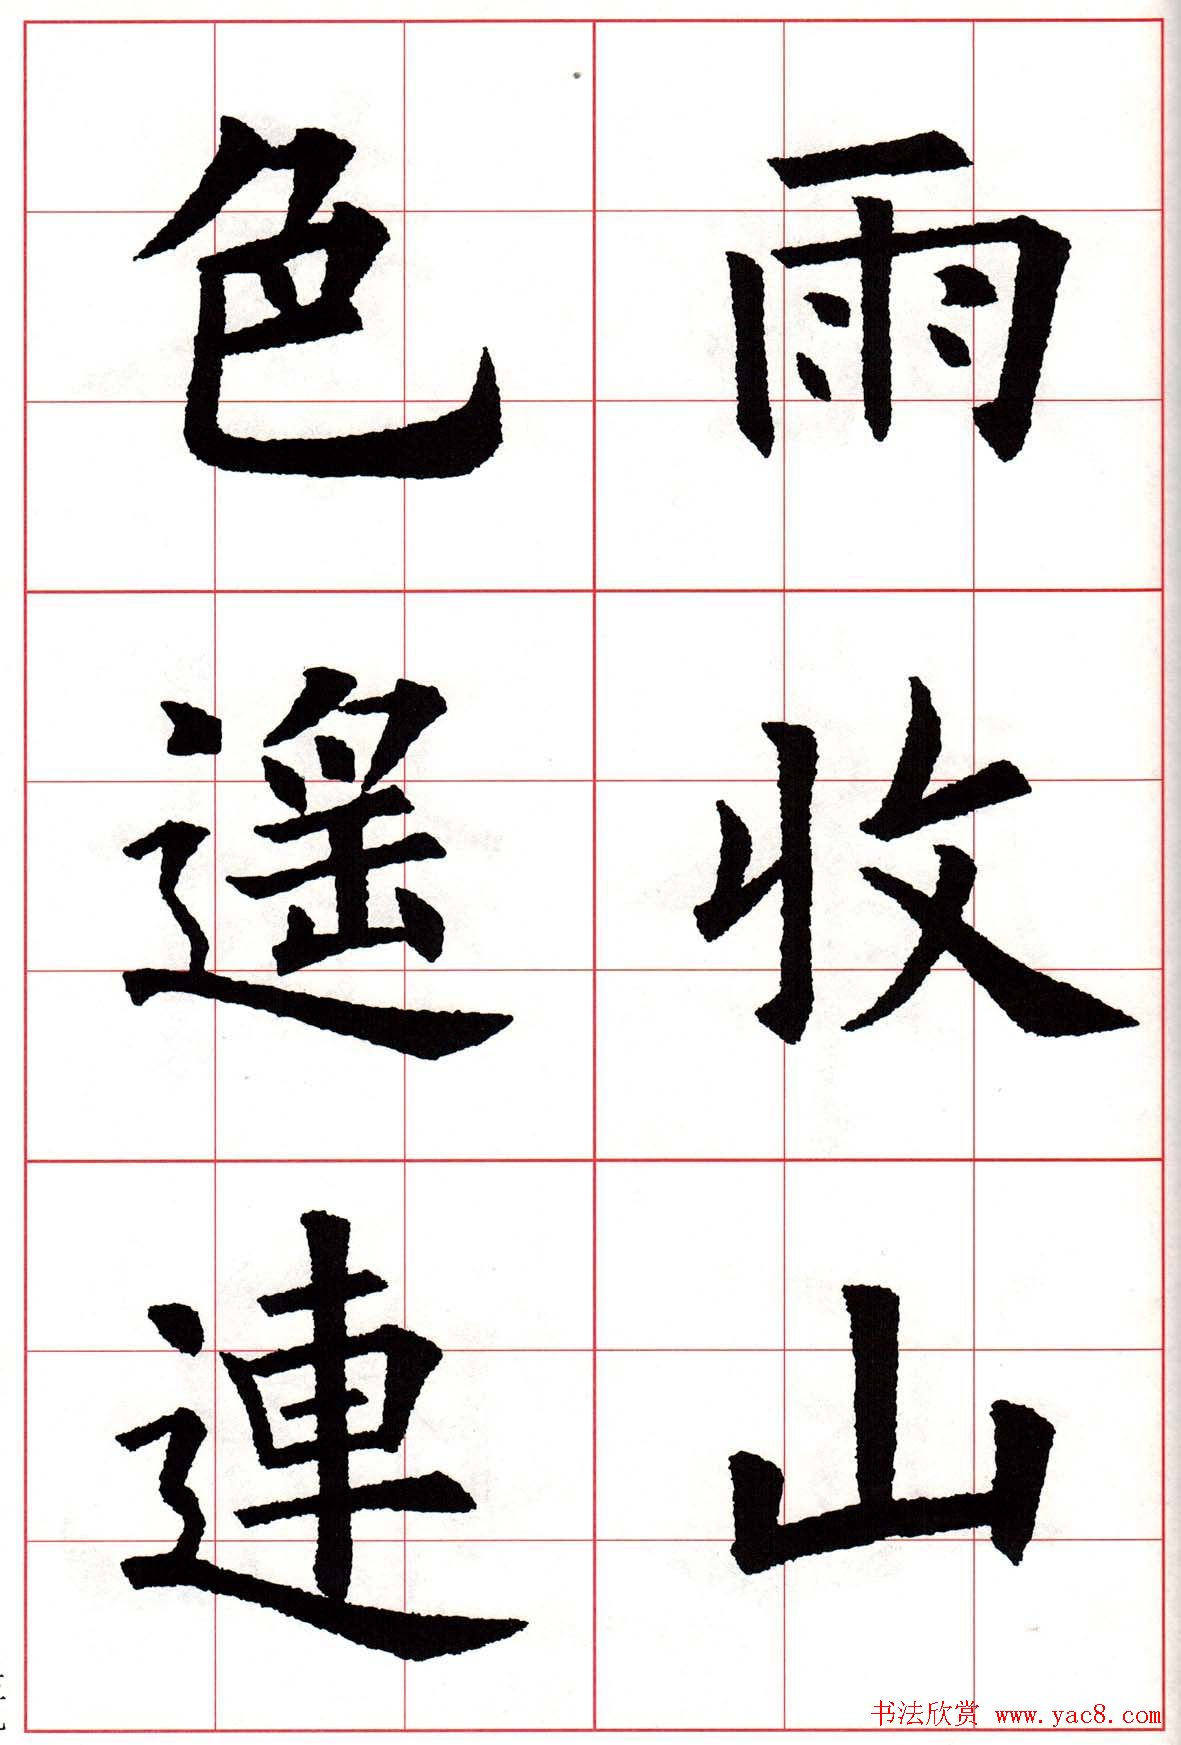 雨收山
色遥連
书法欣赏 www.yac8.com